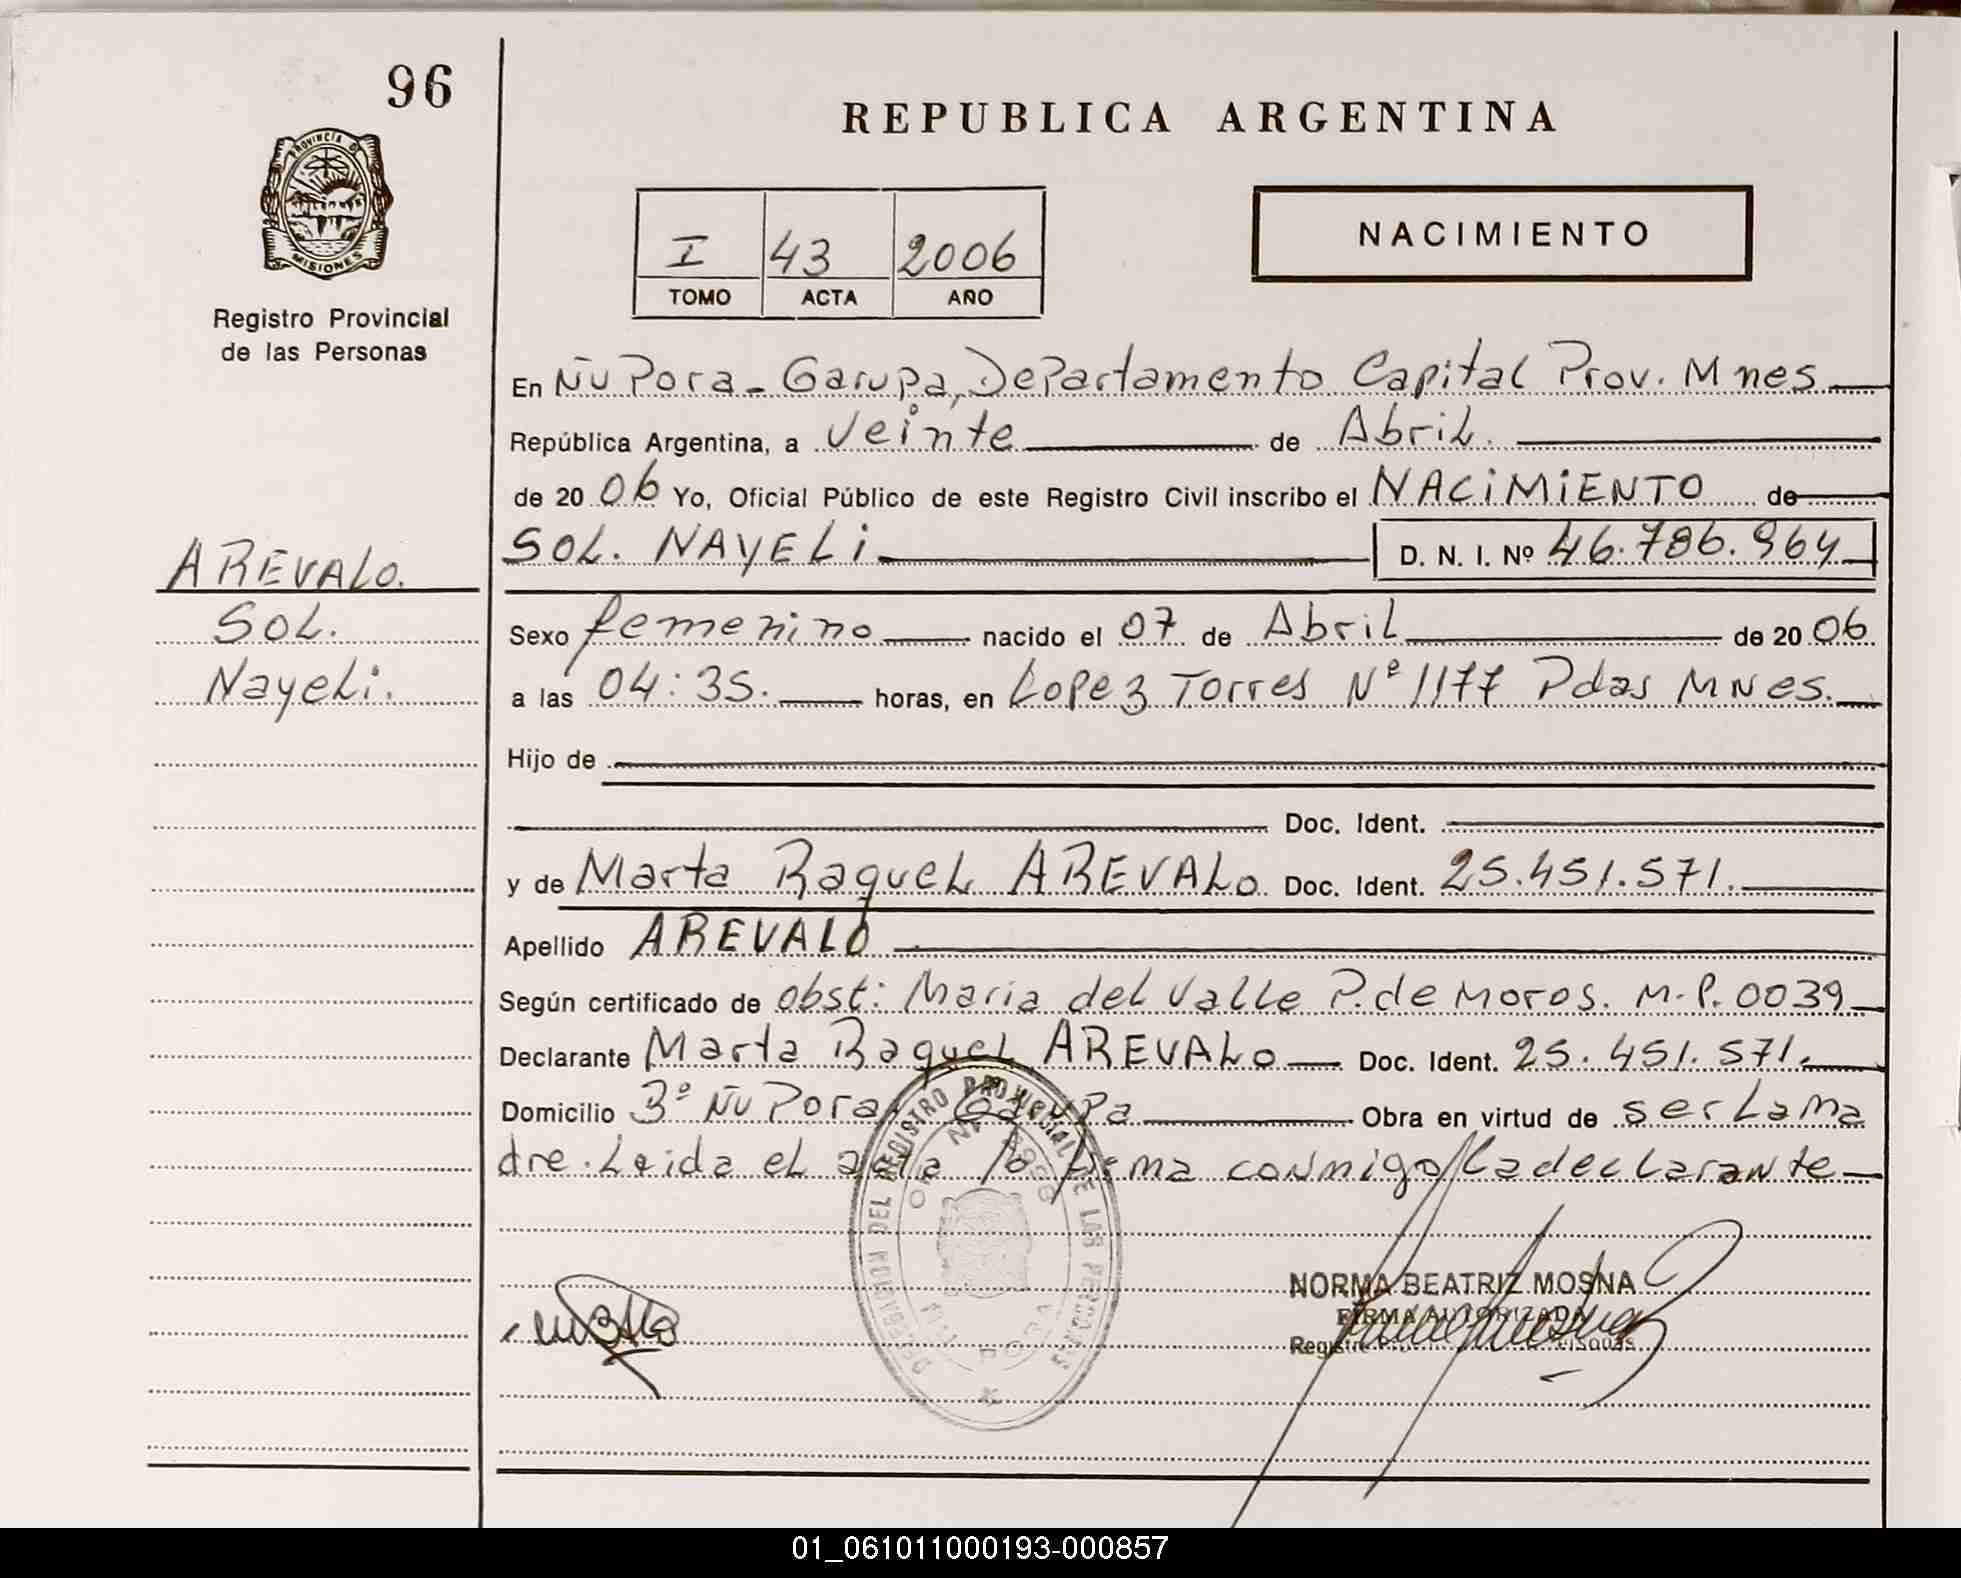 96
REPUBLICA ARGENTINA
PROVINCIA DE
MISIONES
Registro Provincial
de las Personas
I 43 2006
TOMO ACTA AÑO
NACIMIENTO
En Ñu Pora - Garupa, Departamento Capital Prov. Mnes
República Argentina, a Veinte de Abril.
de 20 06 Yo, Oficial Público de este Registro Civil inscribo el NACIMIENTO de
AREVALO.
SOL.
Nayeli.
SOL. NAYELI D. N. I. Nº 46.786.964
Sexo femenino nacido el 07 de Abril de 20 06
a las 04:35. horas, en Lopez Torres Nº 1177 Pdas MNes.
Hijo de
Doc. Ident.
y de Marta Raquel AREVALO Doc. Ident. 25.451.571.
Apellido AREVALO
Según certificado de obst: Maria del Valle P. de Moros. M.P. 0039
Declarante Marta Raquel AREVALO Doc. Ident. 25.451.571.
Domicilio 3º Ñu Pora, Garupa Obra en virtud de ser la ma
dre. Leida el acta la firma conmigo la declarante
DELEGACION DEL REGISTRO PROVINCIAL DE LAS PERSONAS
ÑU PORA
NORMA BEATRIZ MOSNA
FIRMA AUTORIZADA
01_061011000193-000857